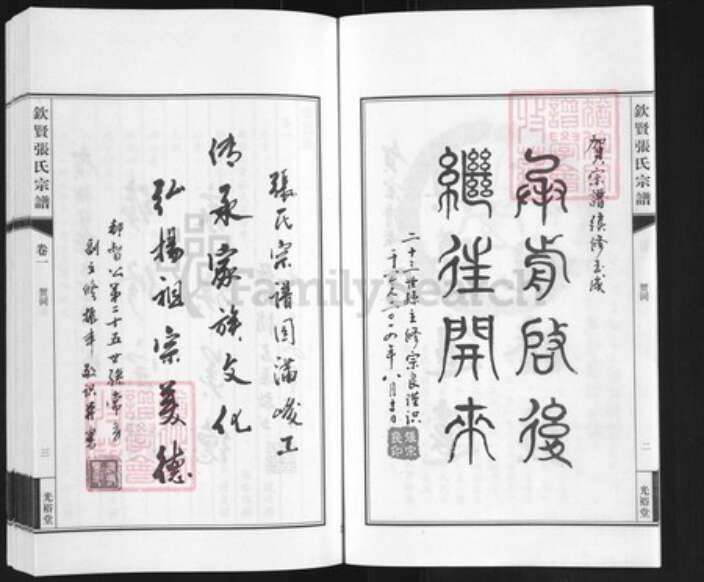 欽賢張氏宗譜
賀詞
二
光裕堂
賀宗譜續修玉成
承前啓後
繼往開來
二十二世孫主修宗良謹識
二〇一四年八月
張宗良印
張氏宗谱圆满竣工
传承家族文化
弘揚祖宗美德
都督公第二十五世孫
副主修
欽賢張氏宗譜
卷一
賀詞
三
光裕堂
FamilySearch